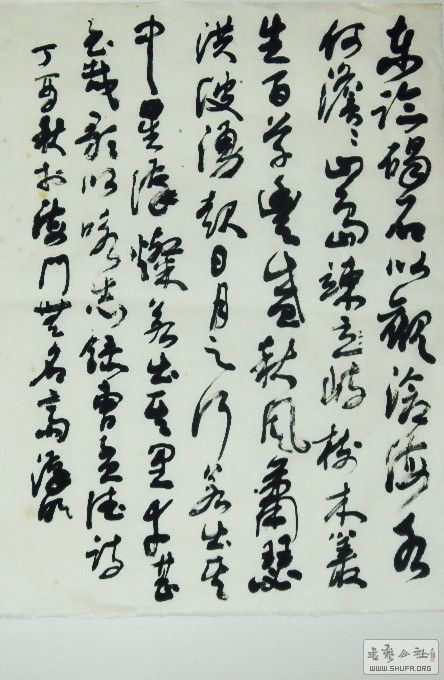 东临碣石以观沧海水
何澹〻山岛竦峙树木丛
生百草丰盛秋风萧瑟
洪波涌起日月之行若出其
中星汉灿若出其里幸甚
至哉歌以咏志 曹孟德诗
丁酉秋于海门無名斋
书艺公社
WWW.SHUFA.ORG